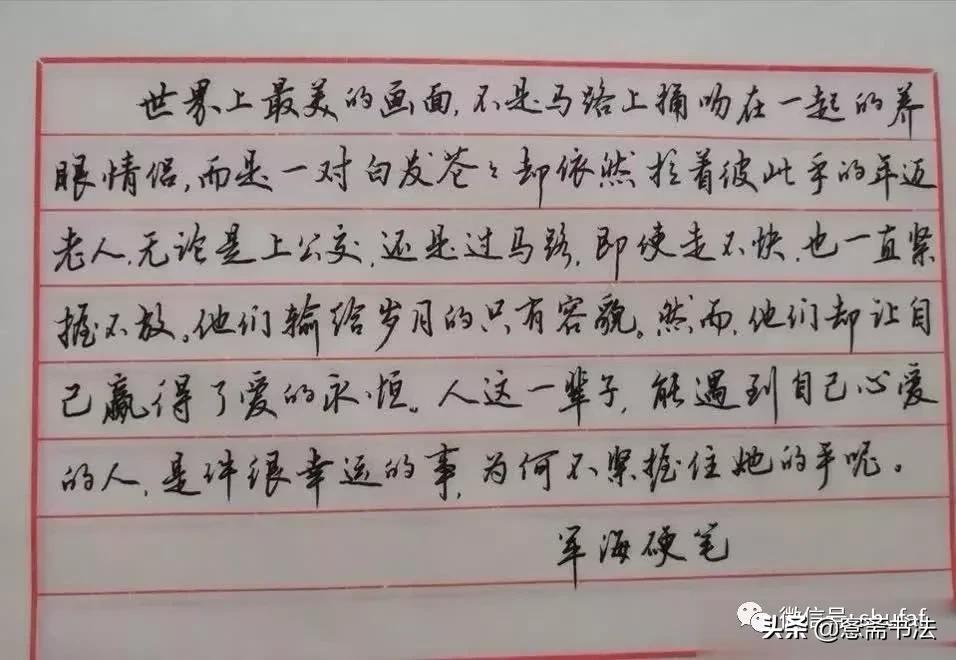 世界上最美的画面，不是马路上拥吻在一起的养
眼情侣，而是一对白发苍々却依然拉着彼此手的年迈
老人，无论是上公交，还是过马路，即使走不快，也一直紧
握不放。他们输给岁月的只有容貌。然而，他们却让自
己赢得了爱的永恒。人这一辈子，能遇到自己心爱
的人，是件很幸运的事，为何不紧握住她的手呢。
军海硬笔
微信号: shufaf
头条@意斋书法